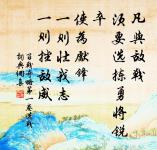 凡與敵戰
須要選揀勇將銳
卒
使為獻鋒
一則壯我志
一則挫敵威
百戰奇略第一卷選戰
詞典網集